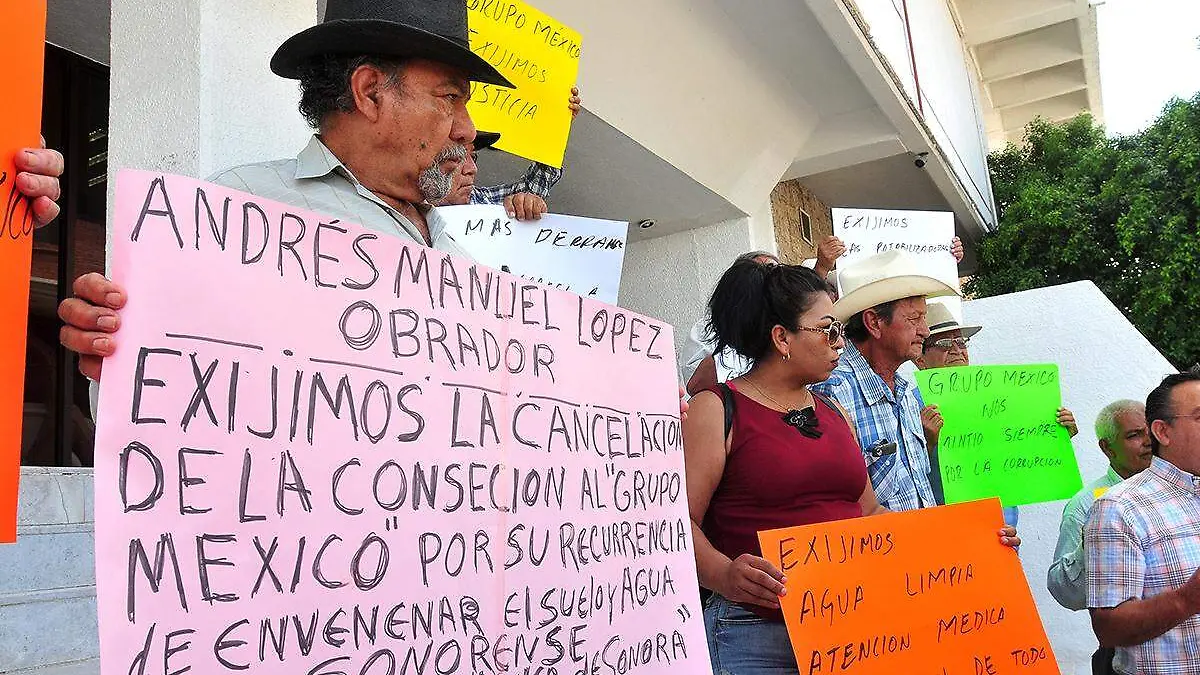 GRUPO MÉXICO
EXIJIMOS
JUSTICIA
MAS DERRAME
EXIJIMOS
MAS POTABILIZADORAS
ANDRÉS MANUEL LOPEZ
OBRADOR
EXIJIMOS LA CANCELACION
DE LA CONSECION AL "GRUPO
MEXICO" POR SU RECURRENCIA
de ENVENENAR El SUElO y AGUA
SONORENSE
de SONORA"
GRUPO MEXICO
NOS
MINTIO SIEMPRE
POR LA CORRUPCION
EXIJIMOS
AGUA LIMPIA
ATENCION MEDICA
DE TODO